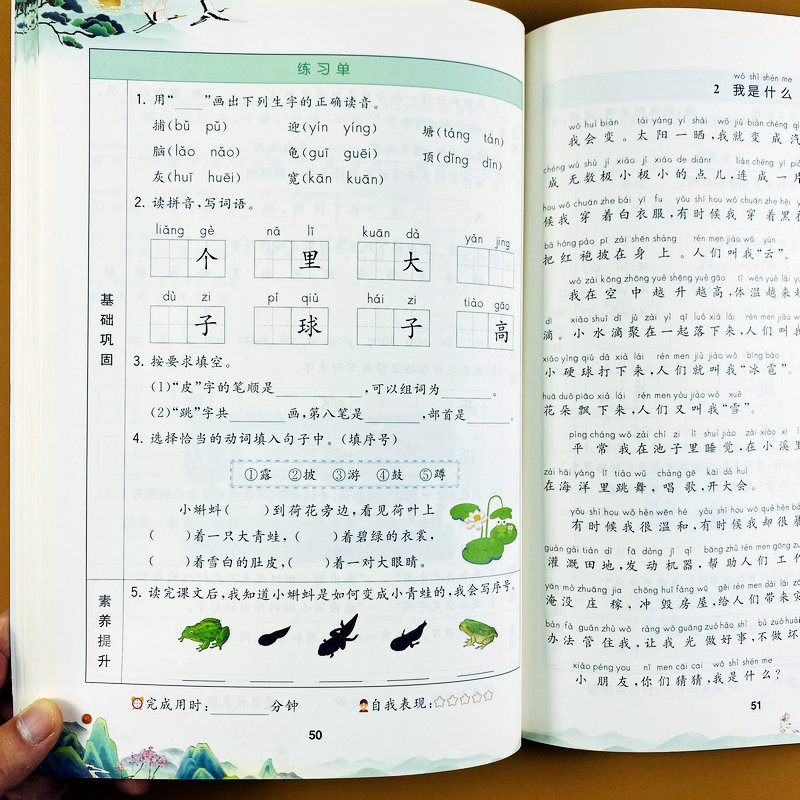 练习单
1. 用“____”画出下列生字的正确读音。
捕(bǔ pǔ) 迎(yín yíng) 塘(táng tán)
脑(lǎo nǎo) 龟(guī guēi) 顶(dǐng dǐn)
灰(huī huēi) 宽(kān kuān)
2. 读拼音,写词语。
liǎng gè nǎ lǐ kuān dà yǎn jing
个 里 大
dù zi pí qiú hái zi tiào gāo
子 球 子 高
基础巩固
3. 按要求填空。
(1)“皮”字的笔顺是____________,可以组词为________。
(2)“跳”字共________画,第八笔是________,部首是______。
4. 选择恰当的动词填入句子中。(填序号)
①露 ②披 ③游 ④鼓 ⑤蹲
小蝌蚪( )到荷花旁边,看见荷叶上
( )着一只大青蛙,( )着碧绿的衣裳,
( )着雪白的肚皮,( )着一对大眼睛。
素养提升
5. 读完课文后,我知道小蝌蚪是如何变成小青蛙的,我会写序号。
完成用时:________分钟 自我表现:☆☆☆☆☆
50
wǒ shì shén me
2 我是什么
wǒ huì biàn tài yáng yí shài wǒ jiù biàn chéng
我会变。太阳一晒,我就变成汽
chéng wú shù jí xiǎo jí xiǎo de diǎnr lián chéng yí
成无数极小极小的点儿,连成一片
hou wǒ chuān zhe bái yī fu yǒu shí hou wǒ chuān zhe hēi
候我穿着白衣服,有时候我穿着黑
bǎ hóng páo pī zài shēn shang rén men jiào wǒ yún
把红袍披在身上。人们叫我“云”。
wǒ zài kōng zhōng yuè shēng yuè gāo tǐ wēn yuè lái
我在空中越升越高,体温越来越
dī xiǎo shuǐ dī jù zài yì qǐ luò xià lái rén men jiào wǒ
滴。小水滴聚在一起落下来,人们叫我
xiǎo yìng qiú dǎ xià lái rén men jiù jiào wǒ bīng báo
小硬球打下来,人们就叫我“冰雹”。
huā duǒ piāo xià lái rén men yòu jiào wǒ xuě
花朵飘下来,人们又叫我“雪”。
píng cháng wǒ zài chí zi lǐ shuì jiào zài xiǎo xī
平常我在池子里睡觉,在小溪里
zài hǎi yáng lǐ tiào wǔ chàng gē kāi dà huì
在海洋里跳舞,唱歌,开大会。
yǒu shí hou wǒ hěn wēn hé yǒu shí hou wǒ què hěn
有时候我很温和,有时候我却很暴
guàn gài tián dì fā dòng jī qì bāng zhù rén men gōng
灌溉田地,发动机器,帮助人们工作
yān mò zhuāng jia chōng huǐ fáng wū gěi rén men dài lái
淹没庄稼,冲毁房屋,给人们带来灾
bàn fǎ guǎn zhù wǒ ràng wǒ guāng zuò hǎo shì bú zuò huài
办法管住我,让我光做好事,不做坏
xiǎo péng you nǐ men cāi cai wǒ shì shén me
小朋友,你们猜猜,我是什么?
51